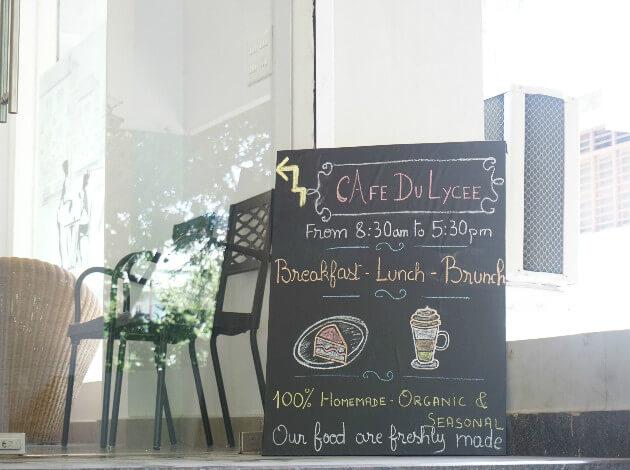 CAFE DU LYCEE
From 8:30am to 5:30pm
Breakfast - Lunch - Brunch
100% HOMEMADE - ORGANIC &
SEASONAL
Our food are freshly made